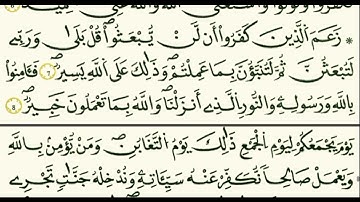 زَعَمَ ٱلذِينَ كَفَرُوٓا۟ أَن لَّنْ يُّبْعَثُوا۟ قُلْ بَلَىٰ وَرَبِّے
لَتُبْعَثُنَّ ثُمَّ لَتُنَبَّؤُنَّ بِمَا عَمِلْتُمْ وَذَٰلِكَ عَلَى ٱللَّهِ يَسِيرٌ فَـَٔامِنُوا۟
بِاللَّهِ وَرَسُولِهِۦ وَالنُّورِ ٱلذِےٓ أَنزَلْنَا وَاللَّهُ بِمَا تَعْمَلُونَ خَبِيرٌ
يَوْمَ يَجْمَعُكُمْ لِيَوْمِ ٱلْجَمْعِ ذَٰلِكَ يَوْمُ ٱلتَّغَابُنِ وَمَنْ يُّؤْمِنۢ بِاللَّهِ
وَيَعْمَلْ صَٰلِحًا نُّكَفِّرْ عَنْهُ سَيِّـَٔاتِهِۦ وَنُدْخِلْهُ جَنَّٰتٍ تَجْرِے